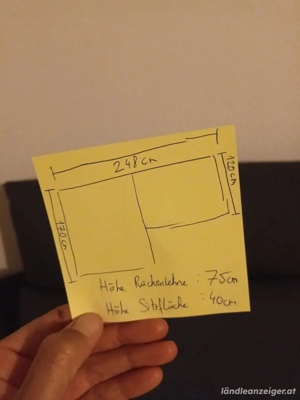 248cm
120cm
170cm
Höhe Rückenlehne : 75cm
Höhe Sitzfläche : 40cm
ländleanzeiger.at